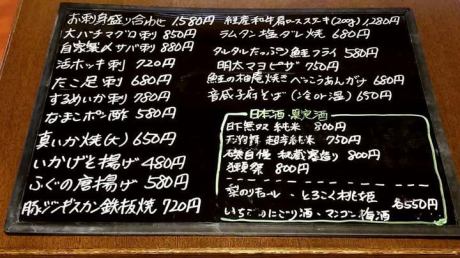 お刺身盛り合わせ 1,580円
大バチマグロ刺 850円
自家製〆サバ刺 880円
活ホッキ刺 720円
たこ足刺 680円
するめいか刺 780円
なまこポン酢 580円
真いか焼(大) 650円
いかげそ揚げ 480円
ふぐの唐揚げ 580円
豚ジンギスカン鉄板焼 720円
経産和牛肩ロースステーキ(200g) 1,280円
ラムタン塩ダレ焼 680円
タルタルたっぷり鮭フライ 580円
明太マヨピザ 750円
鮭の柚庵焼きべっこうあんかけ 680円
音威子府そば(冷or温) 650円
日本酒 限定酒
日下無双 純米 800円
天狗舞 超辛純米 750円
磯自慢 秘蔵寒造り 800円
獺祭 800円
梨のリキュール・とろこく桃姫
各550円
いちごにごり酒、マンゴー梅酒